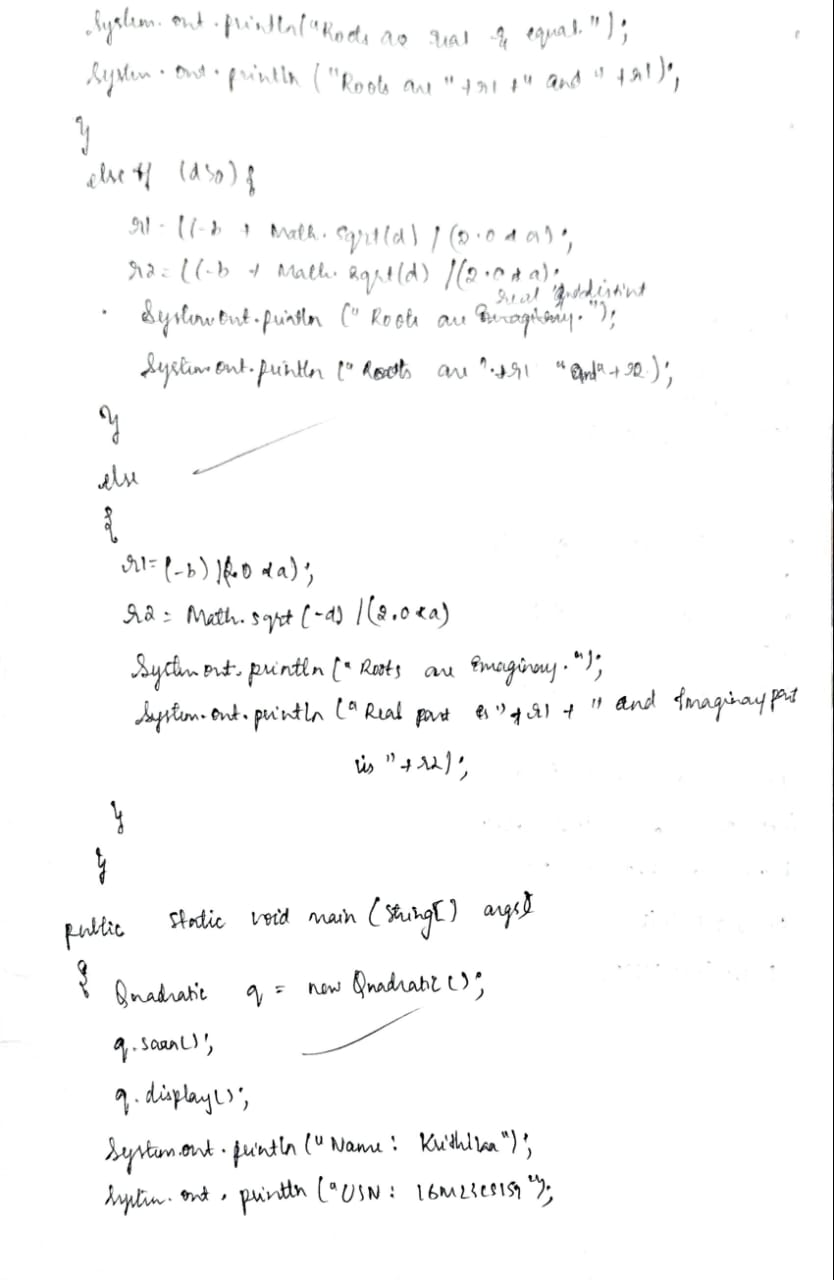 System.out.println("Roots are real & equal.");
System.out.println ("Roots are "+r1+" and "+r1);
}
else if (d>0) {
r1 = ((-b + Math.sqrt(d) / (2.0 * a);
r2 = ((-b + Math.sqrt(d) /(2.0*a);
real and distint
System.out.println (" Roots are Imaginary.");
System.out.println (" Roots are ".+r1 "and"+r2);
}
else
{
r1= (-b) /(2.0 *a);
r2 = Math.sqrt (-d) / (2.0*a)
System out.println (" Roots are Imaginary.");
System.out.println (" Real part is "+r1 + " and Imaginay part
is "+r2);
}
}
public static void main (String[] args)
{ Quadratic q = new Quadratic();
q.scan();
q.display();
System.out.println (" Name : Krithikaa");
System.out.println (" USN :